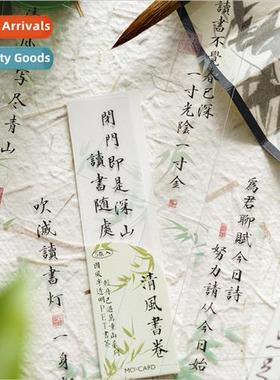 Arrivals
ty Goods
写尽青山
讀書不覺春已深
一寸光陰一寸金
閉門即是深山
讀書隨處
為君聊賦今日詩
努力請從今日始
吹滅讀書灯
一身
清風書卷
MO·CARD